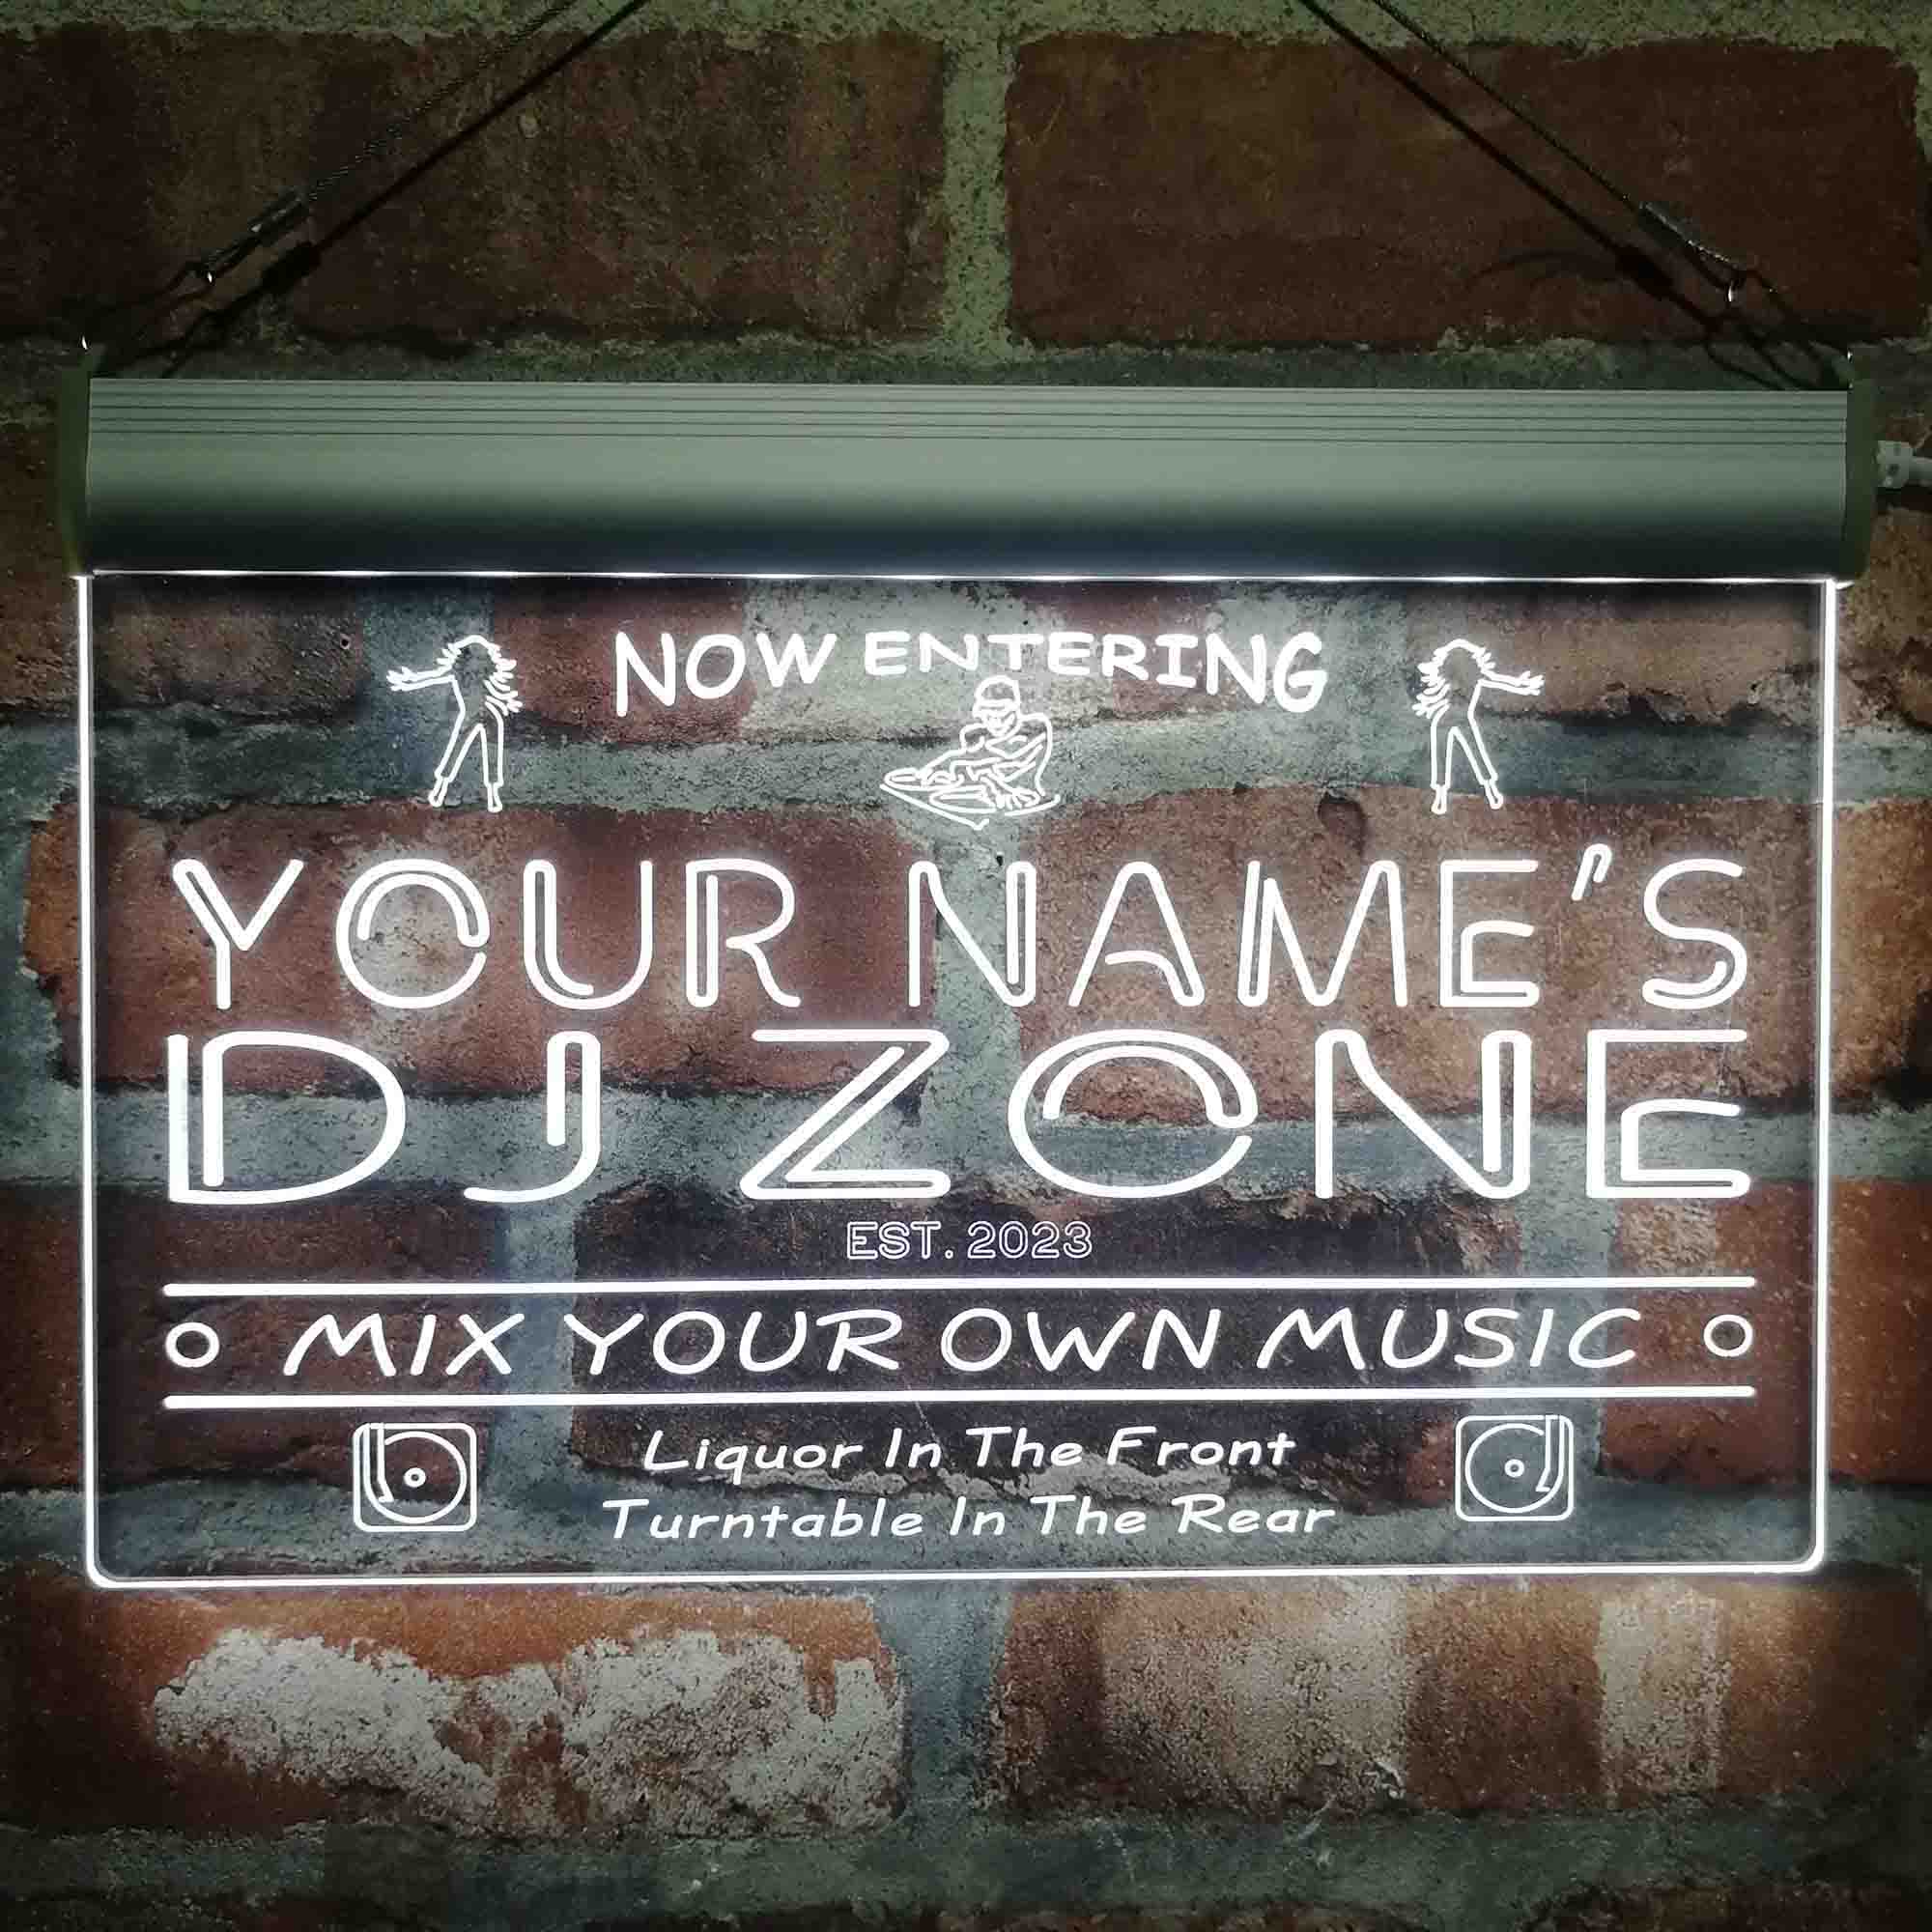 NOW ENTERING
YOUR NAME'S
DJ ZONE
EST. 2023
MIX YOUR OWN MUSIC
Liquor In The Front
Turntable In The Rear